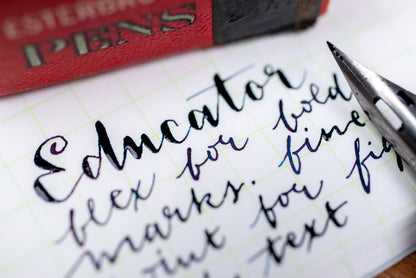 ESTERBROOK
PENS
Educator
flex for bold
marks. fine
point for fig
text